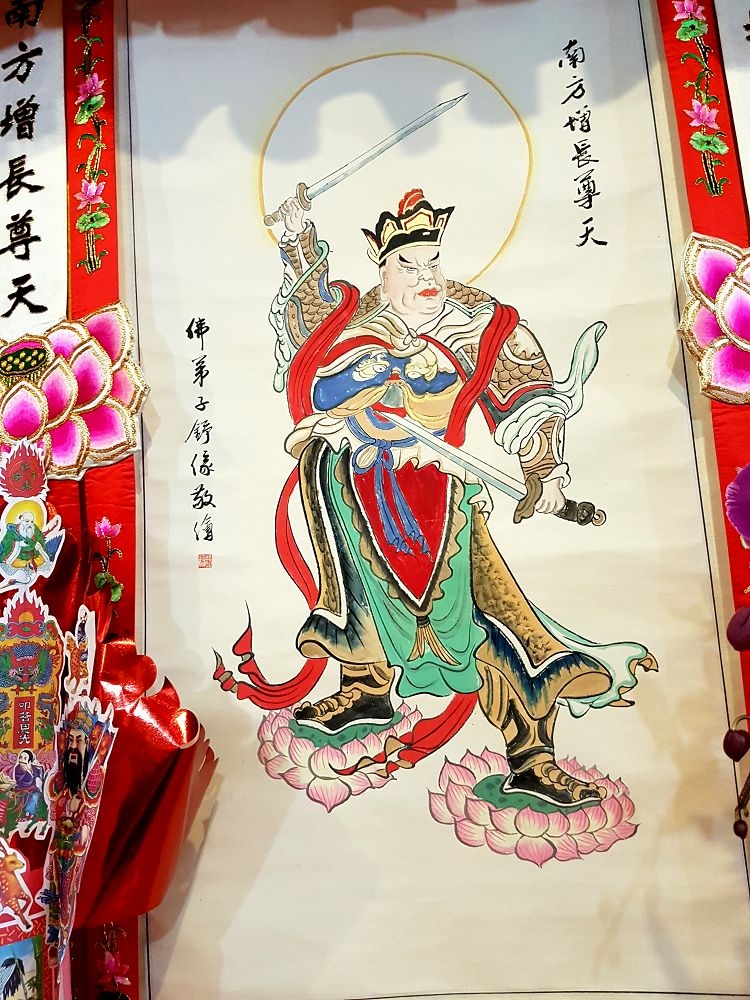 南方增長尊天
佛弟子舒敬
南方增長尊天
叩答恩光